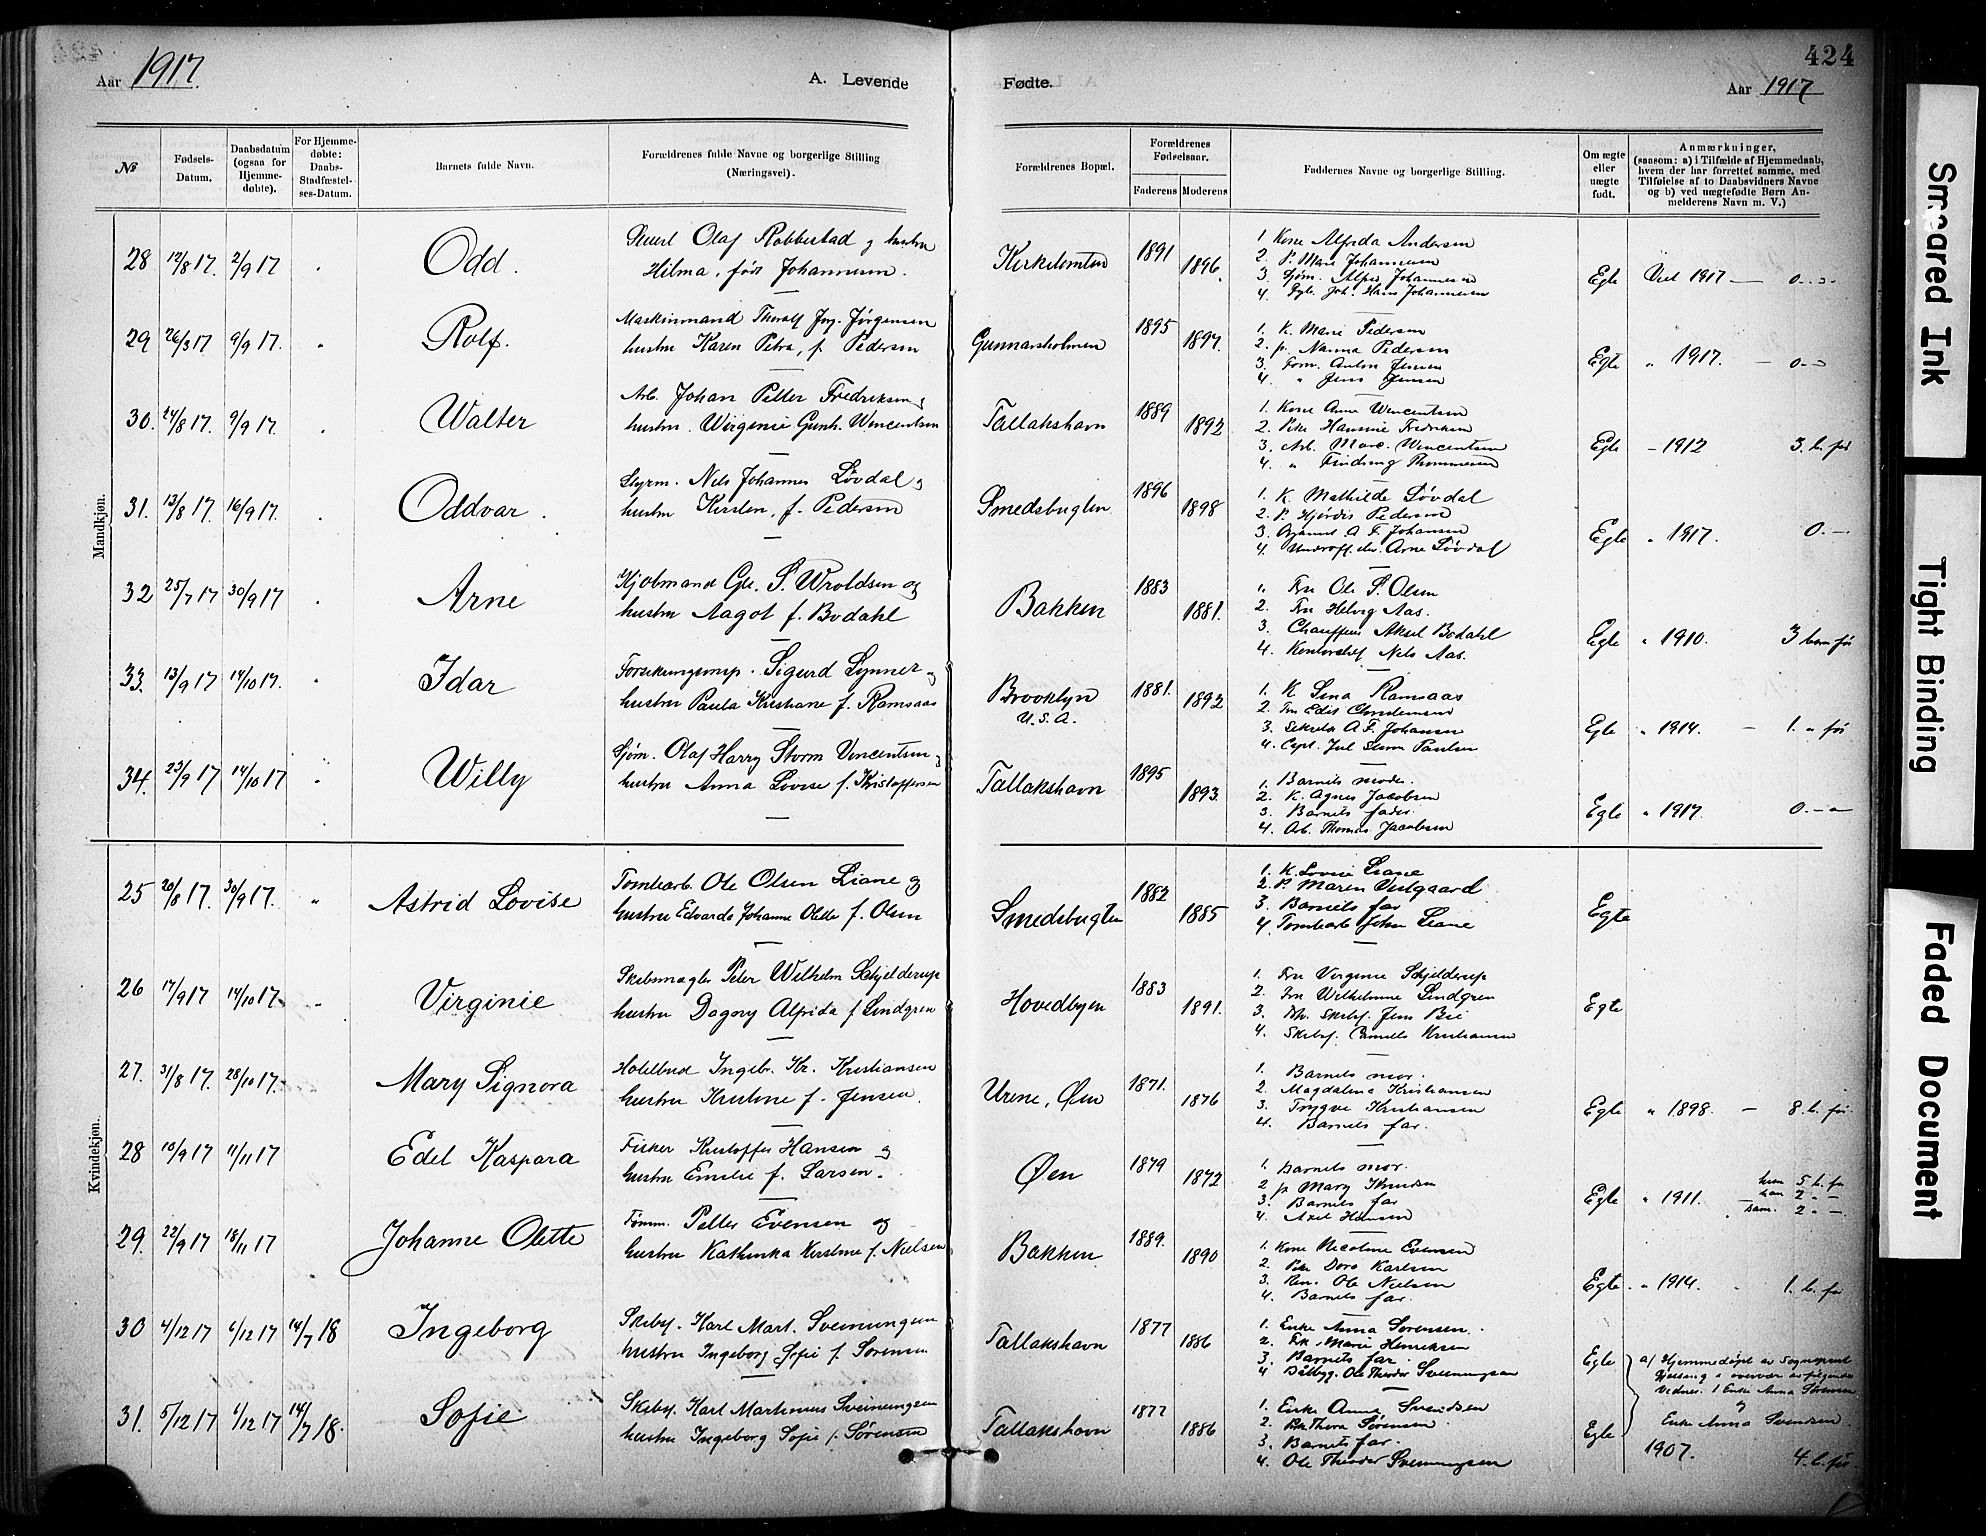 424
Aar 1917.
A. Levende
Fødte.
Aar 1917
№
Fødsels-Datum.
Daabsdatum (ogsaa for Hjemme-døbte).
For Hjemme-døbte: Daabs-Stadfæstel-ses-Datum.
Barnets fulde Navn.
Forældrenes fulde Navne og borgerlige Stilling (Næringsvei).
Forældrenes Bopæl.
Forældrenes Fødselsaar.
Faderens
Moderens
Faddernes Navne og borgerlige Stilling.
Om ægte eller uægte født.
Anmærkninger,
(saasom: a) i Tilfælde af Hjemmedaab,
hvem der har forrettet samme, med
Tilføielse af to Daabsvidners Navne
og b) ved uægtefødte Børn An-
melderens Navn m. V.)
Mandkjøn.
28 12/8 17. 2/9 17 Odd.
Olaf Robbestad og hustru
Hilma, født Johannesen.
Kirketomten 1891 1896.
1. Kone Alfrida Andersen
2. P. Marie Johannesen
3. Sjøm. Johannesen
4. Joh. Hans Johannesen
Egte Viet 1917 — 0
29 26/3 17 9/9 17. Rolf.
Maskinmand Thoralf Jørgensen
hustru Karen Petra, f. Pedersen
Gunnarsholmen 1895 1897.
1. K. Marie Pedersen
2. p. Nanna Pedersen
3. Anton Jensen
4. " Jens Jensen
Egte " 1917. — 0
30. 24/8 17. 9/9 17. Walter
Arb. Johan Petter Fredriksen
hustru Wirginie Gunh. Wincentsen
Tallakshavn 1889 1892
1. Kone Anne Wencentsen
2. Pike Hansine Fredriksen
3. Arb. Wincentsen
4. " Thommesen
Egte - 1912 3. b. før
31. 13/8 17. 16/9 17. Oddvar.
Styrm. Nels Johannes Løvdal
hustru Kirsten, f. Pedersen
Smedsbugten 1896 1898
1. K. Mathilde Løvdal
2. P. Hjørdis Pedersen
3. A. F. Johansen
4. Arne Løvdal
Egte " 1917. 0 -
32 25/7 17 30/9 17 Arne
Kjøbmand S. Wroldsen og
hustru Aagot f. Bodahl
Bakken 1883 1881.
" Fru Ole P. Olsen
2. Fru Helvig Aas.
3. Chauffeur Aksel Bodahl
4. Kontorchef Nils Aas.
Egte " 1910. 3 barn før
33. 13/9 17 14/10 17. Idar
Sigurd Lynner
hustru Paula Kristiane f. Ramsaas
Brooklyn
U.S.A.
1881. 1892
1. K Lina Ramsaas
2. Fru Edis
3. Sekretær A F. Johansen
4. Capt. Paulsen
Egte " 1914. — 1. " før
34. 23/9 17 14/10 17 Willy
Sjøm. Olaf Harry Storm Vencentsen
hustru Anna Lovise f. Kristoffersen
Tallakshavn 1895 1893.
1. Barnets moder.
2. K. Agnes Jacobsen
3. Barnets fader
4. Arb. Thomas Jacobsen
Egte " 1917. 0
Kvindekjøn.
25 20/8 17. 30/9 17. " Astrid Lovise
Tomtearb. Ole Olsen Liane og
hustru Edvarda Johanne Olette f. Olsen
Smedsbugten 1882 1885
1. K. Lovise Liane
2. P. Maren Vestgaard
3. Barnets far
4. Tomtearb. Johan Liane
Egte
26 17/9 17 14/10 17 Virginie
Skibsmægler Peter Wilhelm Schjelderup
hustru Dagny Alfrida f. Lindgren
Hovedbyen 1883 1891.
1. Fru Virginie Schjelderup
2. Fru Wilhelmine Lindgren
3. Skibsf. Jens Bie
4. Skibsf. Kristiansen
Egte
27. 31/8 17. 28/10 17. Mary Signora
Hotelbud Ingebr. Kr. Kristiansen
hustru Kristine f. Jensen.
Urene, Øen 1871. 1876
1. Barnets mor.
2. Magdalena Kristiansen
3. Trygve Kristiansen
4. Barnets far.
Egte " 1898. — 8. b. før
28 10/9 17 11/11 17 Edel Kaspara
Fisker Kristoffer Hansen og
hustru Emilie f. Larsen.
Øen 1879 1872
1. Barnets mor.
2 p. Mary Knudsen
3. Barnets far
4. Axel Hansen
Egte " 1911.
hun 5 b. før
han 2 " —
sam. 2 " —
29. 22/9 17 18/11 17 Johanne Olette
Tømm. Petter Evensen og
hustru Kathinka Kirstine f. Nielsen
Bakken 1889. 1890
1. Kone Nicoline Evensen
2. Pike Dora Karlsen
3. Ole Nielsen
4. Barnets far.
Egte. " 1914. 1. b. før
30 4/12 17 6/12 17 14/7 18 Ingeborg
Skibsf. Karl Mart. Sveinungsen
hustru Ingeborg Sofie f. Sørensen
Tallakshavn 1877 1886
1. Enke Anna Sørensen.
2. Frk. Marie Henriksen
3. Barnets far.
4 Båtbyg. Ole Theodor Sveinungsen
Egte
a/ Hjemmedøpt av Sogneprest
i overvær av følgende
vidner. 1 Enke Anna Sørensen
og
Enke Anna Svendsen.
31. 5/12 17 6/12 17 14/7 18. Sofie
Skibsf. Karl Martinius Sveinungsen
hustru Ingeborg Sofie f. Sørensen
Tallakshavn 1877 1886
1. Enke Anna Svendsen
2. Frk Thora Sørensen.
3. Barnets far.
4. Ole Theodor Sveinungsen
Egte
1907. 4. b. før.
Smeared Ink
Tight Binding
Faded Document